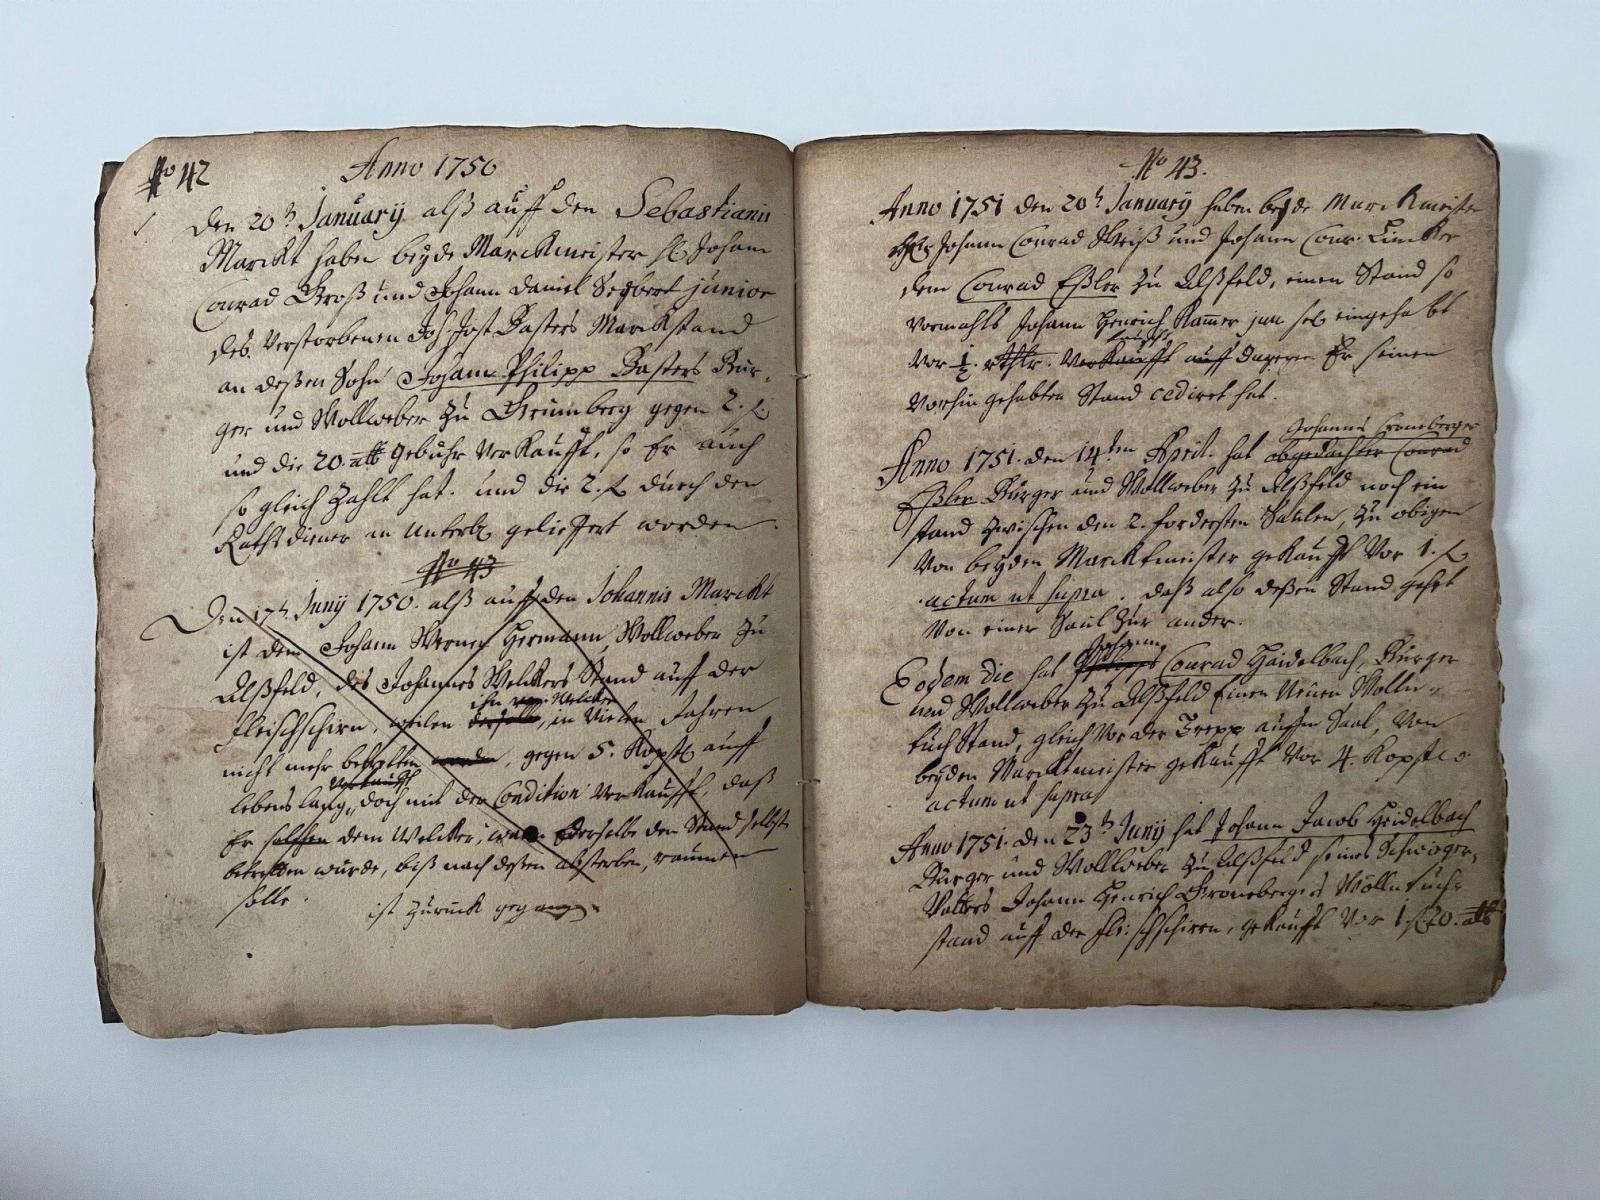 No 42
Anno 1750
Den 20ten January alß auff den Sebastianis
Marckt haben beyde Marckmeister H. Johann
Conrad Groß und Johann Daniel Seybert junior
des Verstorbenen Joh. Jost Casters Marckstand
an deßen Sohn Johann Philipp Casters Bur,
ger und Wollweber zu Grünnberg gegen 2. f
und die 20. alb gebühr Verkaufft, so Er auch
so gleich zahlt hat. und die 2. f durch den
Rathsdiener geliffert worden
No 43
Den 17ten Juny 1750. alß auff den Johannis Marckt
ist dem Johann Werner Hermann, Wollweber zu
Alßfeld, des Johannes Welckers Stand auff der
ihn Welcker
Fleischschirn, weilen derselbe, in Vielen Jahren
nicht mehr betretten worden, gegen 5. Kopst auff
Verkaufft
lebenslang, doch mit der Condition Verkaufft, daß
Er dem Welcker, wann derselbe den Stand selbst
betretten würde, biß nach deßen absterben, raumen
solle.
ist zurück gegangen.
No 43.
Anno 1751 den 20t January haben beyde Marckmeister
Johann Conrad Weiß und Johann Conr. Lincker
dem Conrad Eßler zu Alßfeld, einen Stand so
Vormahls Johann Henrich Rammer jun sel eingehabt
Vor 1/2 rthlr. Verkaufft auff dargegen Er seinen
Vorhin gehabten Stand cediret hat.
Johannes Croneberger
Anno 1751. den 14ten April. hat obgedachter Conrad
Eßler Bürger und Wollweber zu Alßfeld noch ein
stand zwischen den 2. fordersten Saulen, zu obigem
Von beyden Marcktmeister gekaufft Vor 1. f
actum ut supra. daß also deßen Stand geht
Von einer Saul zur ander.
Johann
Eodem die hat Philipps Conrad Haidelbach, Bürger
und Wollweber zu Alßfeld Einen Neuen Wolln-
tuch Stand, gleich Vor der Trepp auffm Saal, Von
beyden Marcktmeister gekaufft Vor 4. Kopst
actum ut supra
Anno 1751. den 23ten Juny hat Johann Jacob Heidelbach
Bürger und Wollweber zu Alßfeld seines Schwieger,
Vatters Johann Henrich Croneberger's Wölln tuch-
stand auff der Fleischschirn, gekaufft Vor 1 f 20. alb